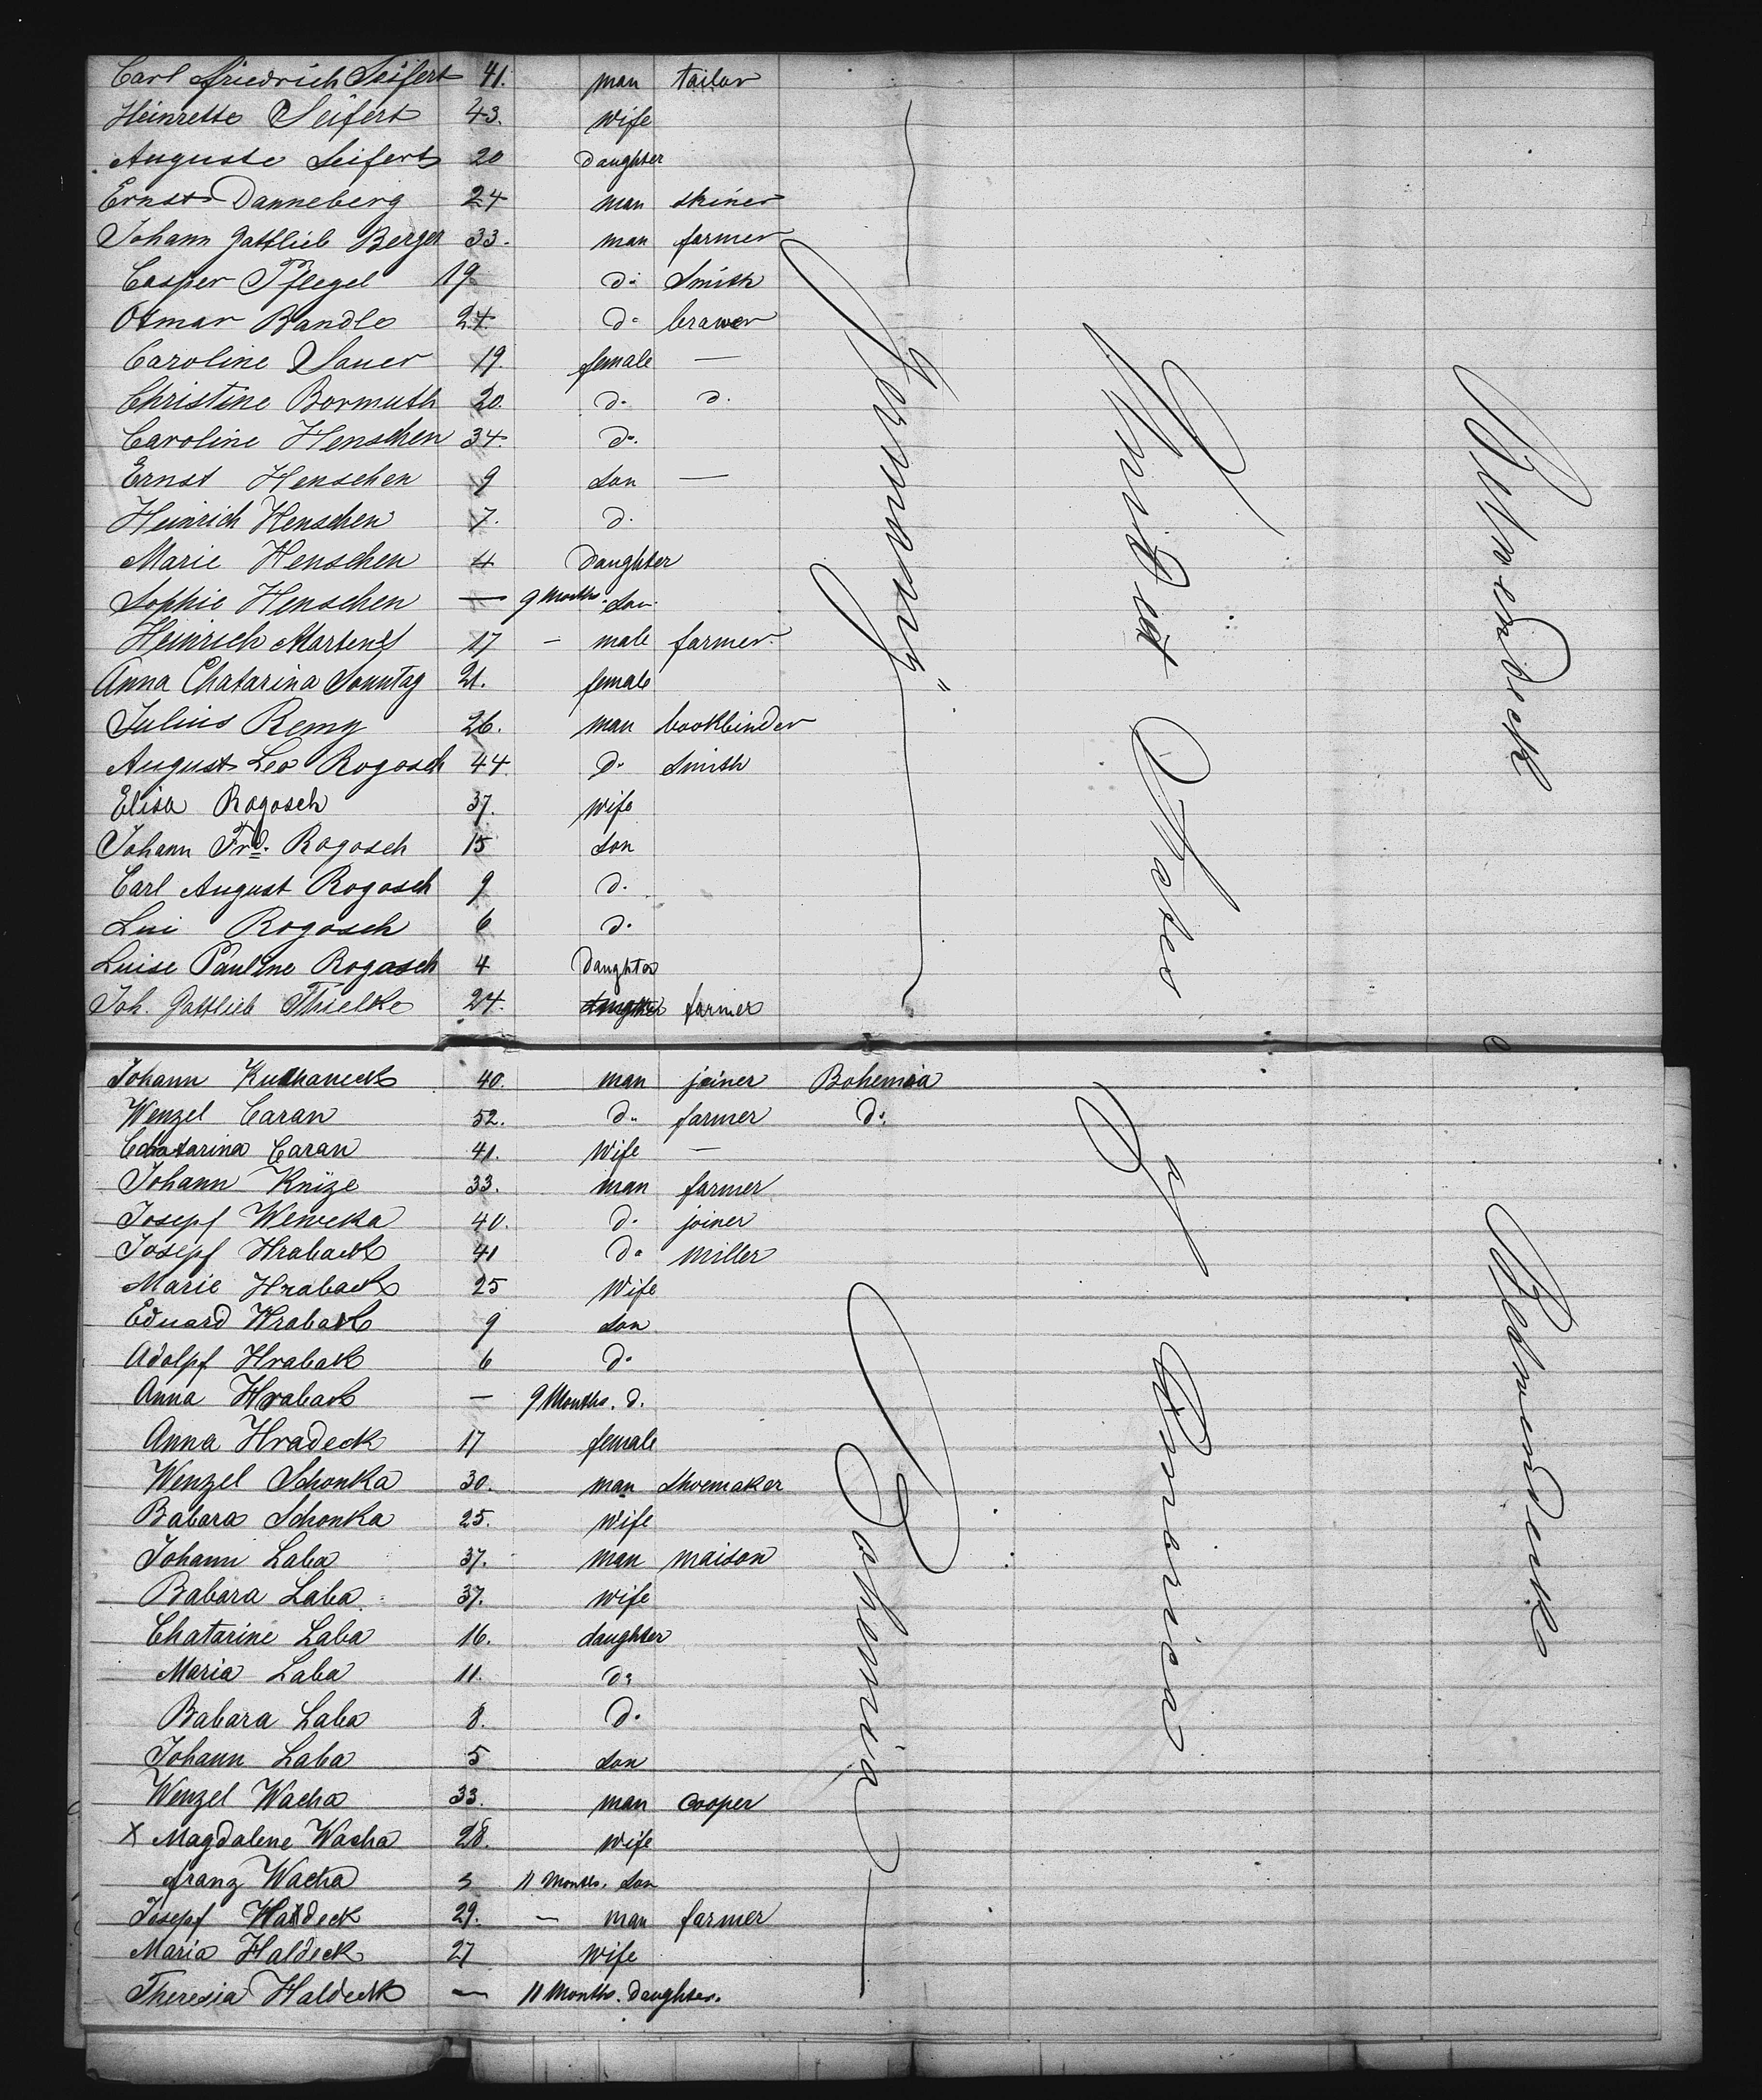 Carl Friedrich Seifert 41. man tailor
Heinrette Seifert 43. wife
Auguste Seifert 20 daughter
Ernst Danneberg 24 man skiner
Johann Gottlieb Berger 33. man farmer
Casper Pflegel 19 do Smith
Otmar Bandle 24. do brawer
Caroline Sauer 19. female —
Christine Bormuth 20. do. d.
Caroline Henschen 34. do.
Ernst Henschen 9 son —
Heinrich Henschen 7. d.
Marie Henschen 4 daughter
Sophie Henschen — 9 Months. son.
Heinrich Martens 17 — male farmer.
Anna Chatarina Sonntag 21. female
Julius Remy 26. man bookbinder
August Leo Rogosch 44. do Smith
Elisa Rogosch 37. wife
Johann Frd. Rogosch 15 son
Carl August Rogosch 9 d.
Lui Rogosch 6 d.
Luise Pauline Rogosch 4 daughter
Joh. Gottlieb Thielke 24. daughter farmer
Germany
United States
Between deck
Johann 40. man joiner Bohemia
Wenzel Caran 52. do. farmer do.
Chatarina Caran 41. Wife —
Johann Knize 33. man farmer
Josepf Wewerka 40. d. joiner
Josepf Hraback 41 do miller
Marie Hraback 25 Wife
Eduard Hraback 9 son
Adolpf Hraback 6 do
Anna Hraback — 9 Months. d.
Anna Hradeck 17 female
Wenzel Schonka 30. man shoemaker
Babara Schonka 25. wife
Johann Laba 37. man maison
Babara Laba 37. wife
Chatarine Laba 16. daughter
Maria Laba 11. do
Babara Laba 8. do
Johann Laba 5 son
Wenzel Wacha 33. man Cooper
X Magdalene Wacha 28. wife
Franz Wacha 11 Months. son
Josepf Haldeck 29. — man farmer
Maria Haldeck 27 wife
Theresia Haldeck — 11 Months. daughter.
Bohemia
of America
Between deck